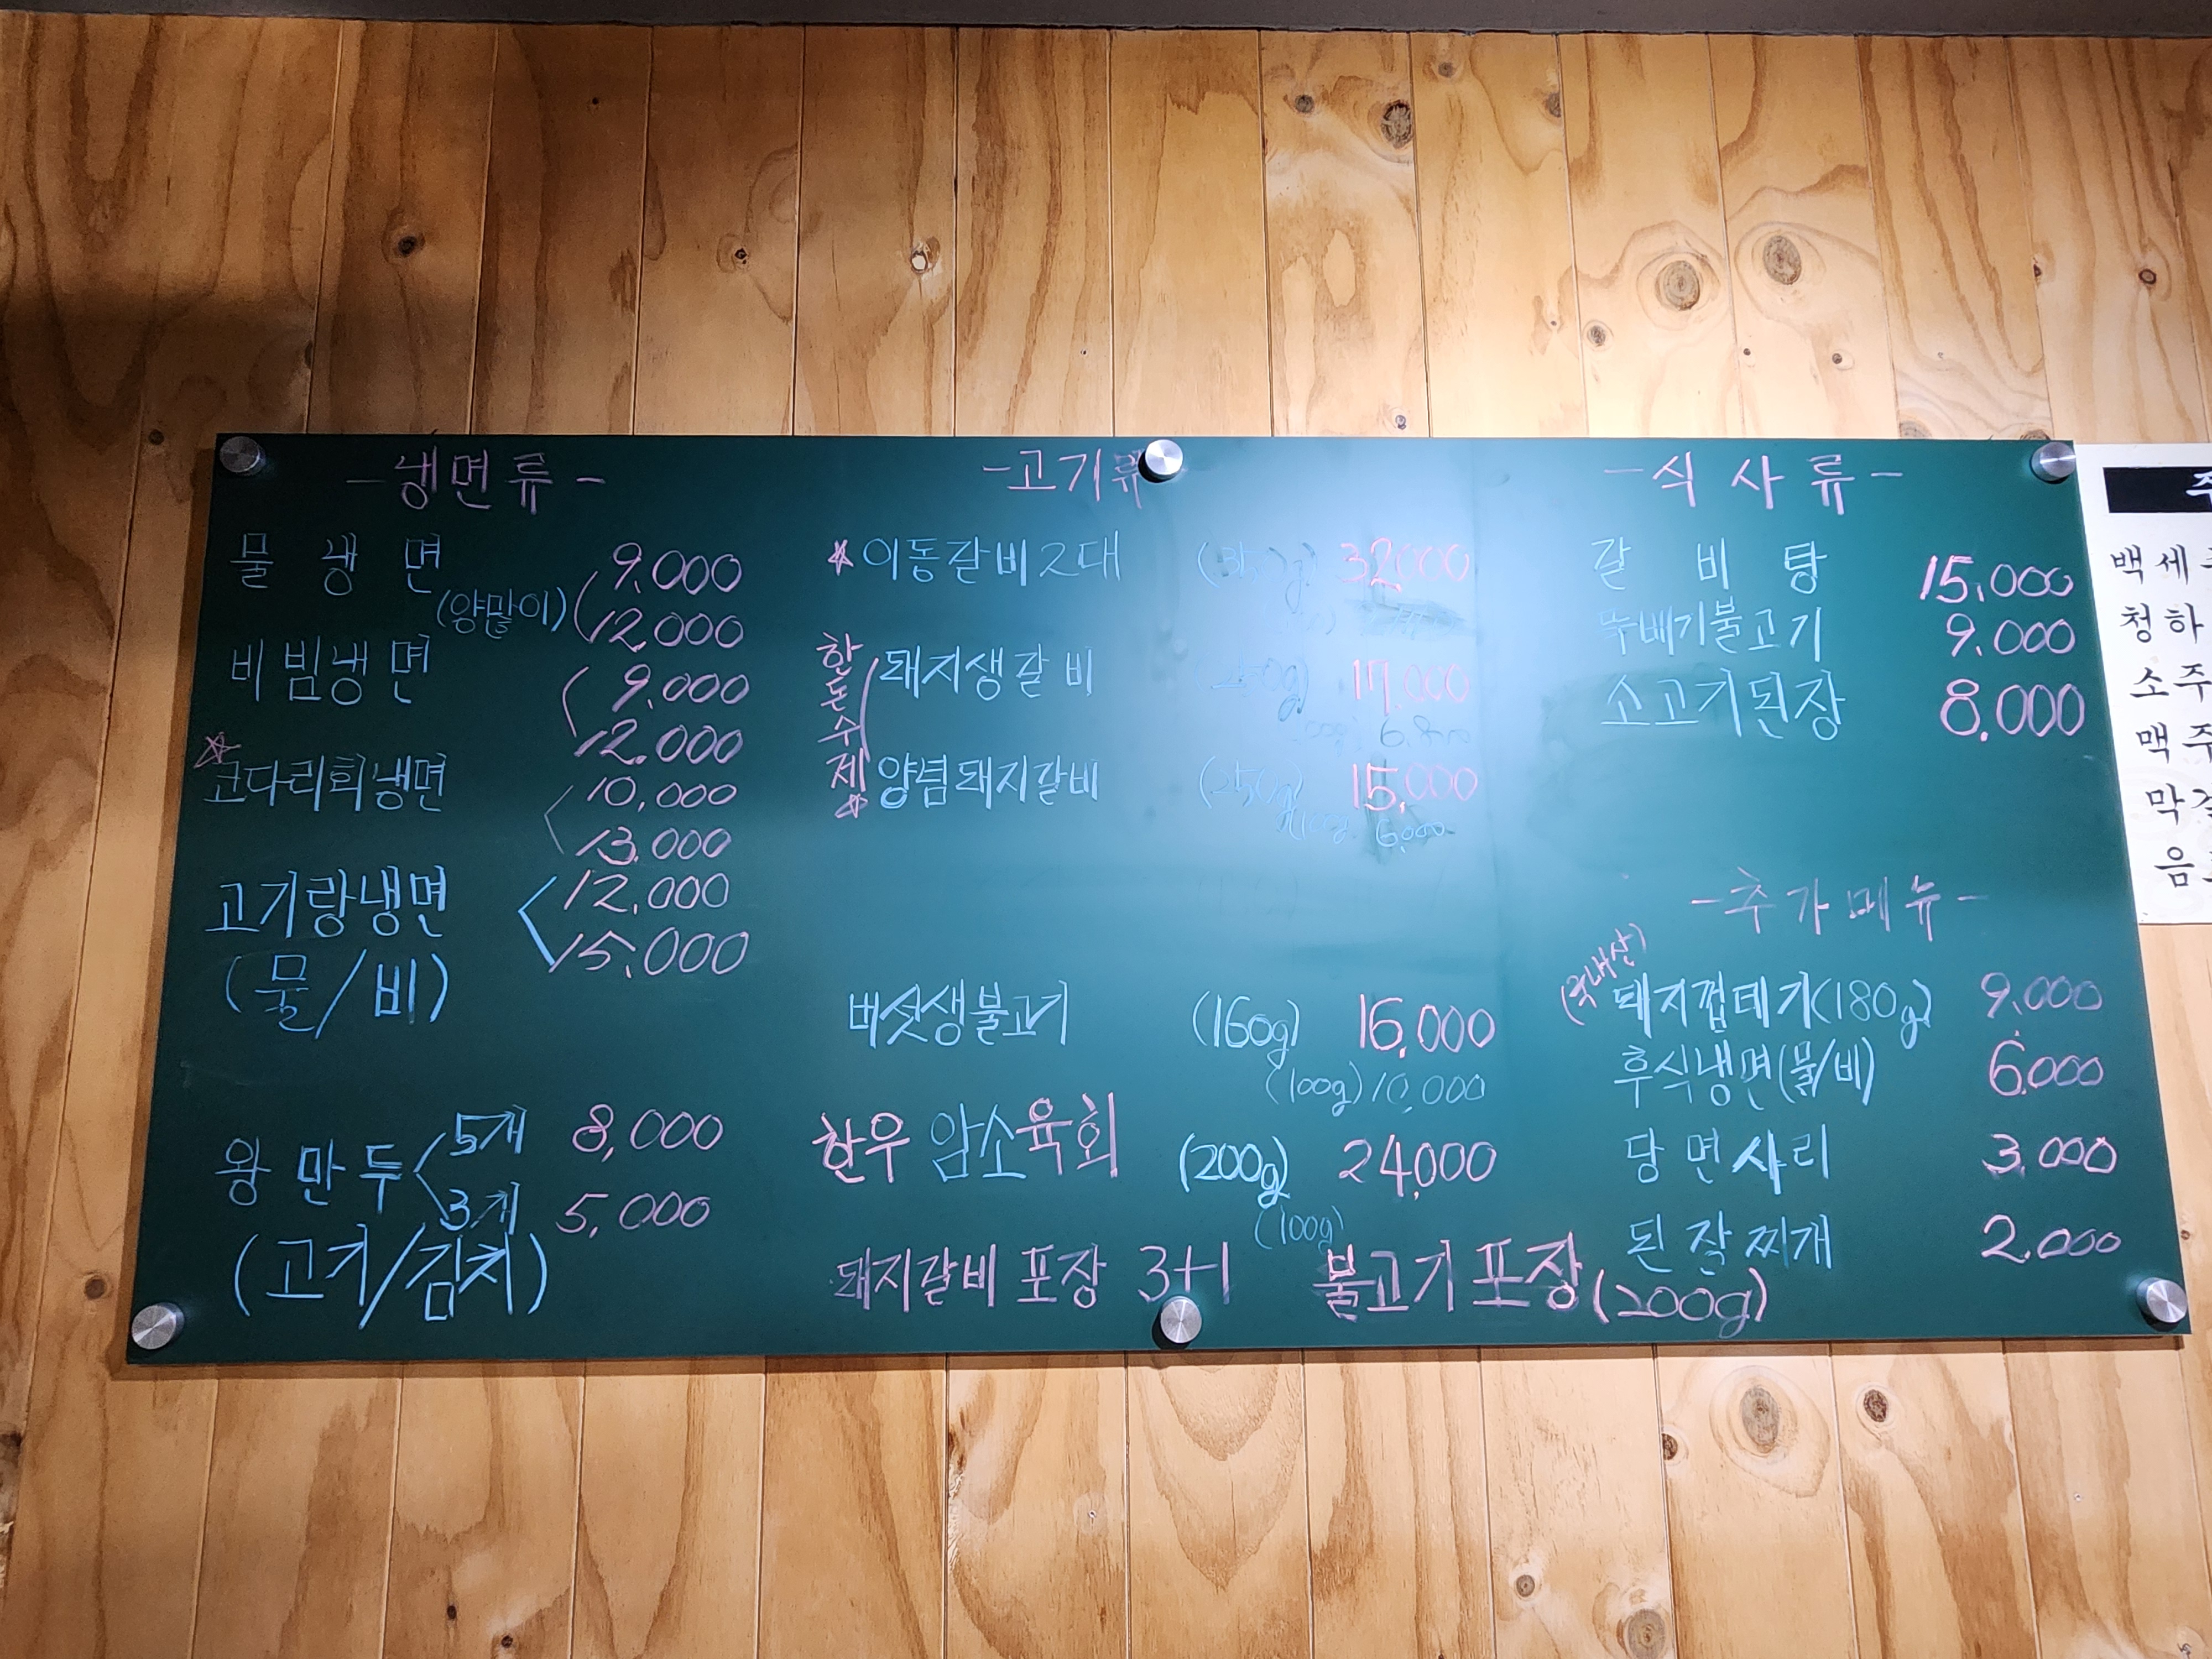 -냉면류-
물 냉 면 9,000
(양많이) 12,000
비빔냉면 9,000
12,000
코다리회냉면 10,000
13,000
고기랑냉면 12,000
(물/비) 15,000
왕만두 5개 8,000
3개 5,000
(고기/김치)
-고기류
이동갈비2대 32,000
한돈수제
돼지생갈비 17,000
양념돼지갈비 (250g) 15,000
6,000
버섯생불고기 (160g) 16,000
(100g) 10,000
한우 암소육회 (200g) 24,000
(100g)
돼지갈비 포장 3+1 불고기 포장 (200g)
-식사류-
갈 비 탕 15,000
뚝배기불고기 9,000
소고기된장 8,000
-추가메뉴-
(국내산)
돼지껍데기(180g) 9,000
후식냉면(물/비) 6,000
당면사리 3,000
된장찌개 2,000
백세
청하
소주
맥주
막
음